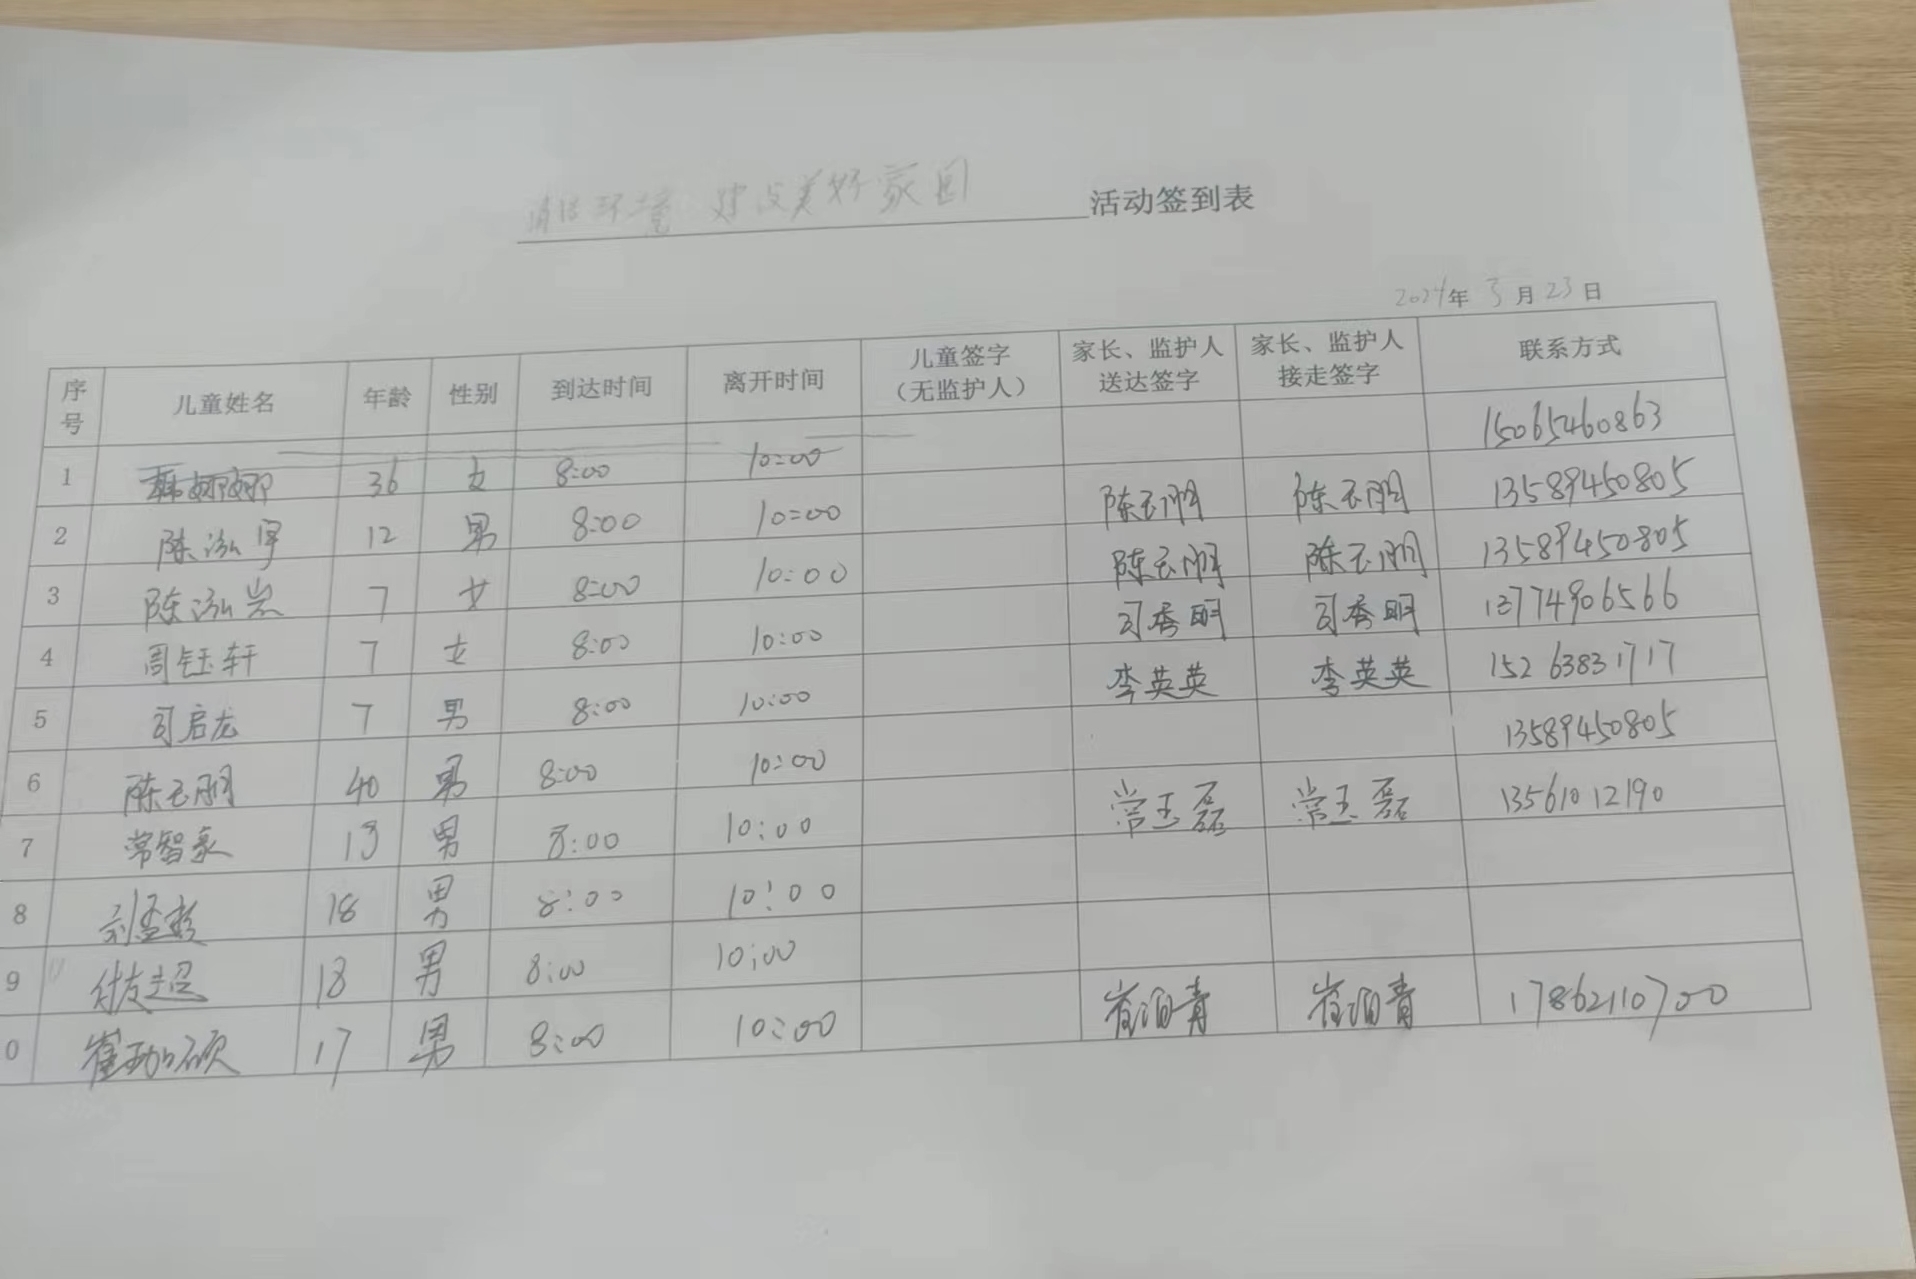 清洁环境 建设美好家园 活动签到表
2024年 3月23日
序号 儿童姓名 年龄 性别 到达时间 离开时间 儿童签字（无监护人） 家长、监护人送达签字 家长、监护人接走签字 联系方式
1 韩娜娜 36 女 8:00 10:00 15065460863
2 陈泓宇 12 男 8:00 10:00 陈玉刚 陈玉刚 13589450805
3 陈泓岩 7 女 8:00 10:00 陈玉刚 陈玉刚 13589450805
4 周钰轩 7 女 8:00 10:00 司秀明 司秀明 13774906566
5 司启龙 7 男 8:00 10:00 李英英 李英英 15263831717
6 陈玉刚 40 男 8:00 10:00 13589450805
7 常智豪 13 男 8:00 10:00 常玉磊 常玉磊 13561012190
8 18 男 8:00 10:00
9 付友超 18 男 8:00 10:00
0 17 男 8:00 10:00 17862110700